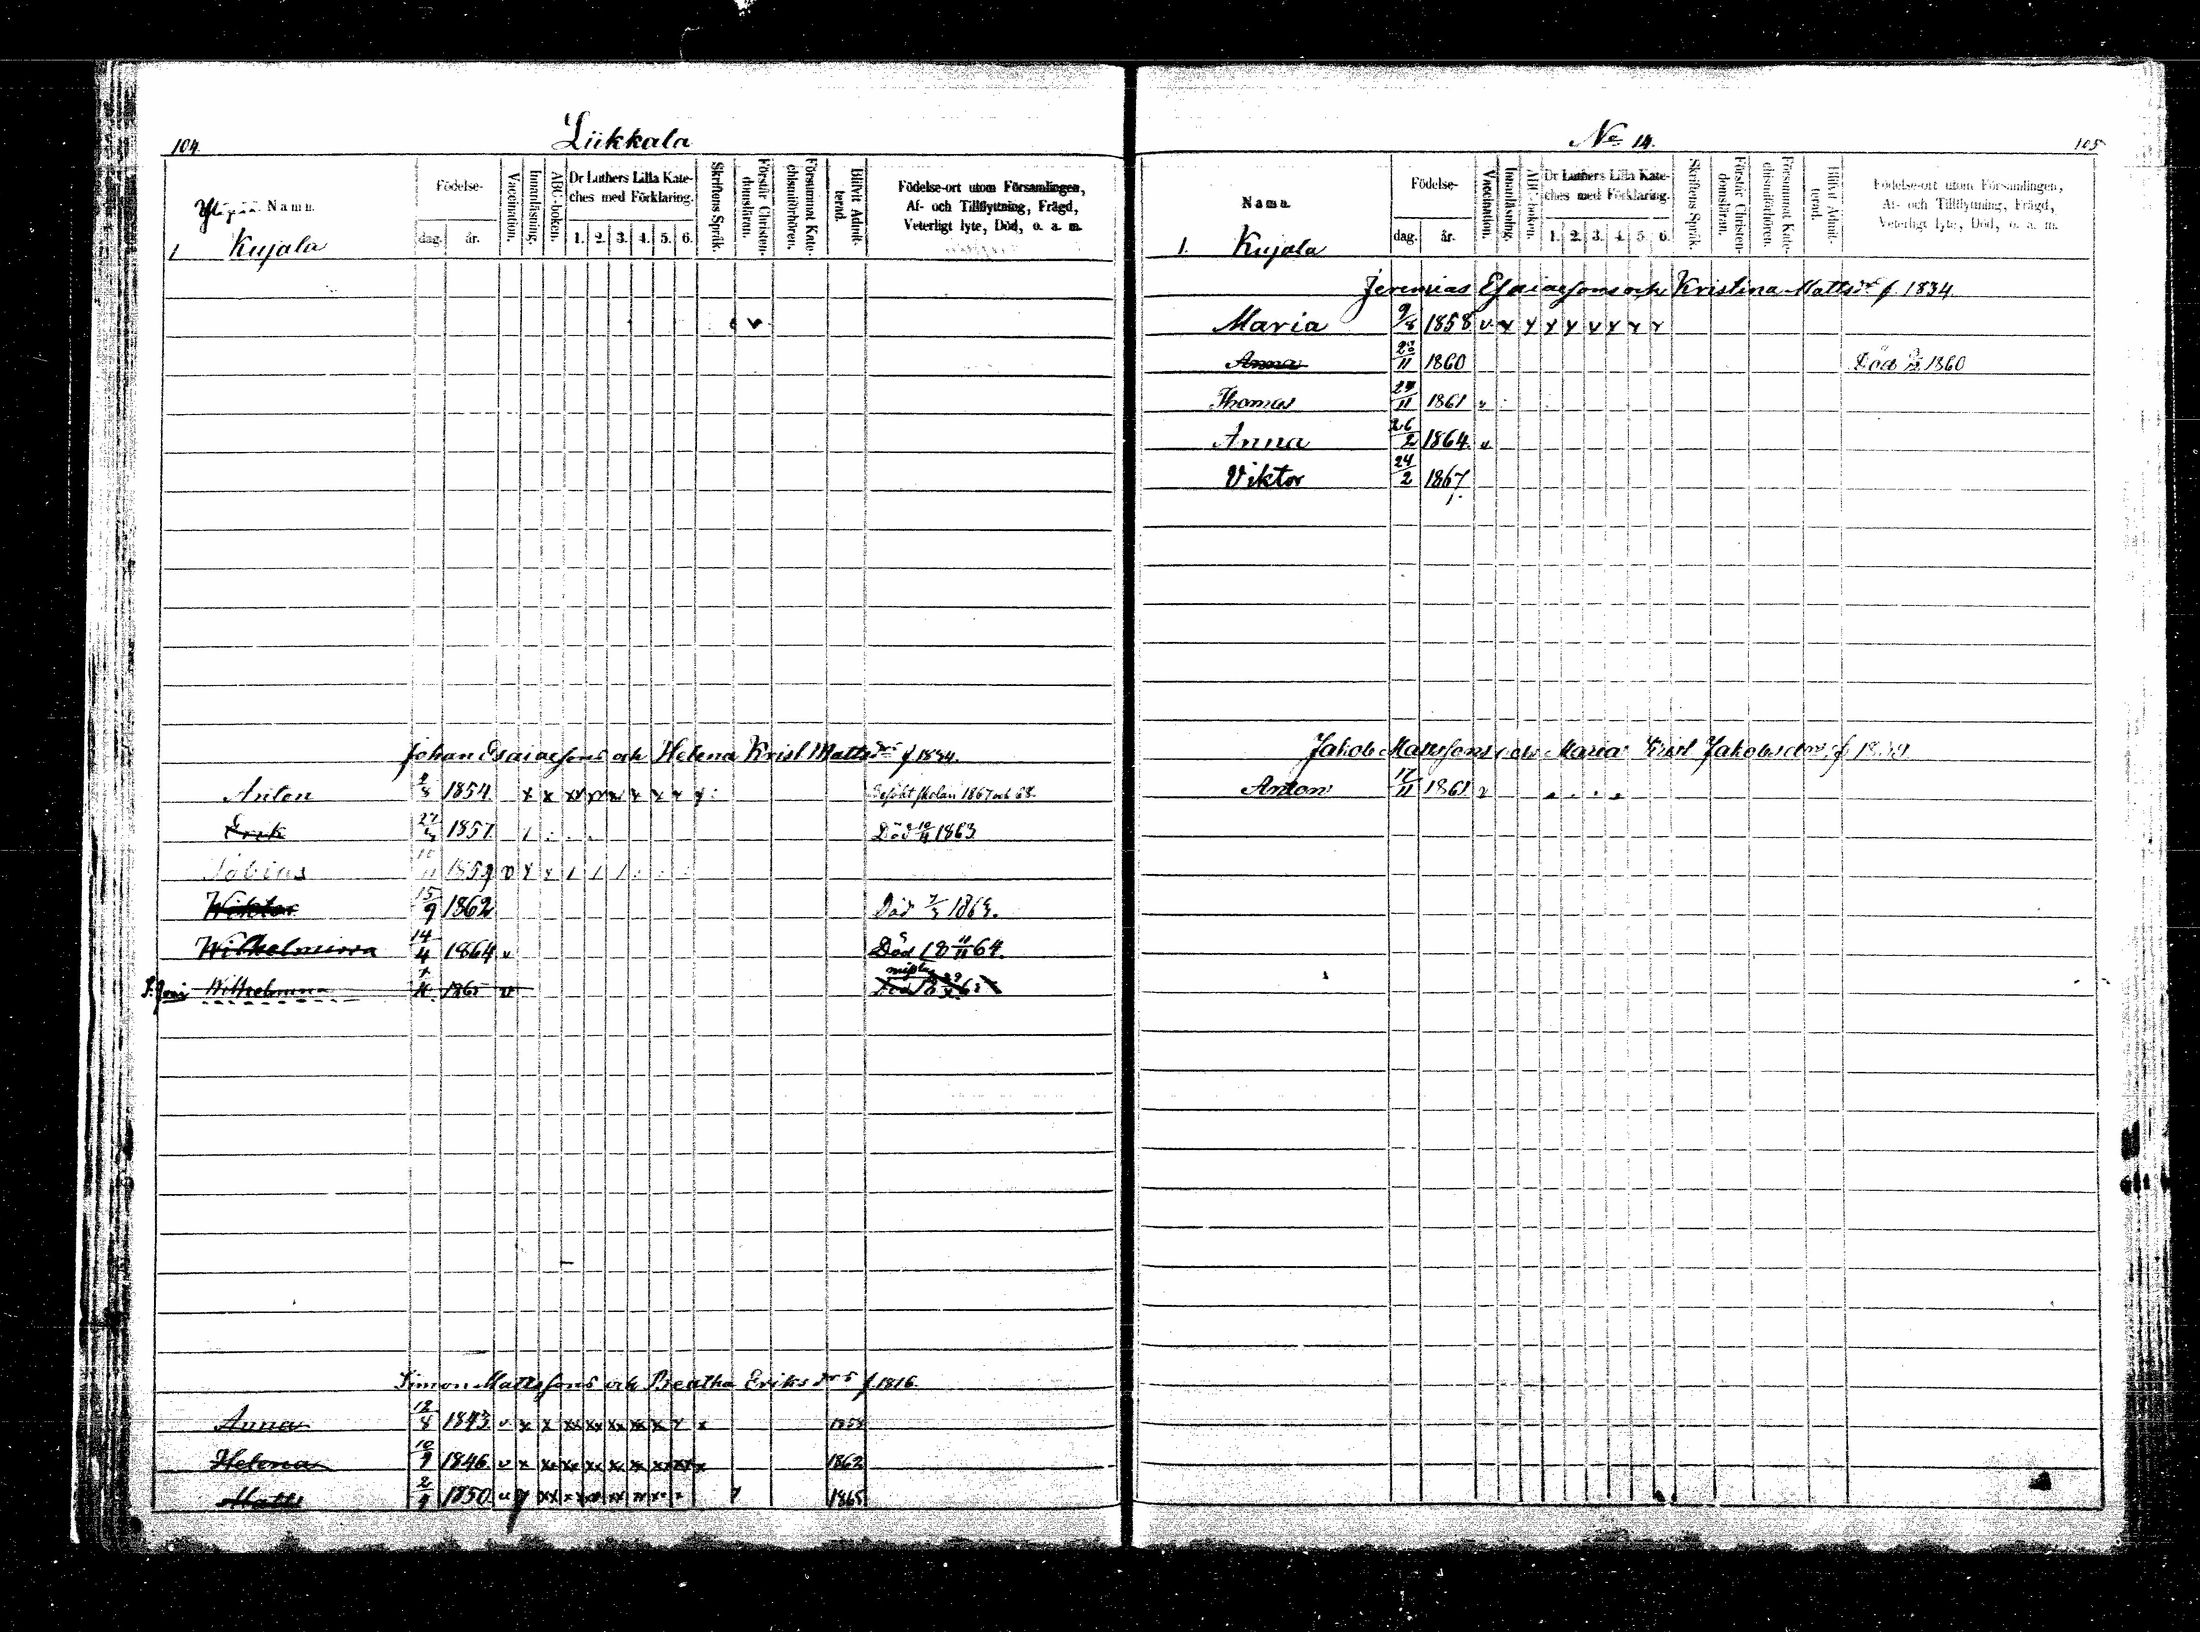 104.
Liikkala
Namn.
Födelse-
dag. år.
Vaccination.
Innanläsning.
ABC-boken.
Dr Luthers Lilla Kate-
ches med Förklaring.
1. 2. 3. 4. 5. 6.
Skriftens Språk.
Förstår Christen-
domsläran.
Försummat Kate-
chismiförhören.
Blifvit Admit-
terad.
Födelse-ort utom Församlingen,
Af- och Tillflyttning, Frägd,
Veterligt lyte, Död, o. a. m.
1 Kujala
Johan Esaiaesons och Helena Krist Mattsdrs f 1834.
Anton 2/8 1854 x x xx xx xx x x x x Besökt skolan 1867 och 68.
Erik 1857. Död 1863
Tobias 1859 v x x
Wiktor 15/9 1862 Död
Wilhelmina 14/4 1864 v Död 18 11/11 64.
Wilhelmina 1865 v
Simon Mattssons och Breatha Eriksdrs f 1816.
Anna 12/8 1843. v x x xx xx xx xx x x x 1858
Helena 10/9 1846 v x xx xx xx xx xx xx xx x 1862
Matts 2/9 1850 1865
No 14.
105
Namn.
Födelse-
dag. år.
Vaccination.
Innanläsning.
ABC-boken.
Dr Luthers Lilla Kate-
ches med Förklaring.
1. 2. 3. 4. 5. 6.
Skriftens Språk.
Förstår Christen-
domsläran.
Försummat Kate-
chismiförhören.
Blifvit Admit-
terad.
Födelse-ort utom Församlingen,
Af- och Tillflyttning, Frägd,
Veterligt lyte, Död, o. a. m.
1. Kujala
Jeremias Esaiaesons och Kristina Mattsdr f. 1834.
Maria 9/8 1858 v x x x x v x x x
Anna 1860 Död 1860
Thomas 1861 v
Anna 26/2 1864. v
Viktor 24/2 1867
Jakob Mattssons och Maria Krist Jakobsdotr f 1839
Anton 17/11 1861 v